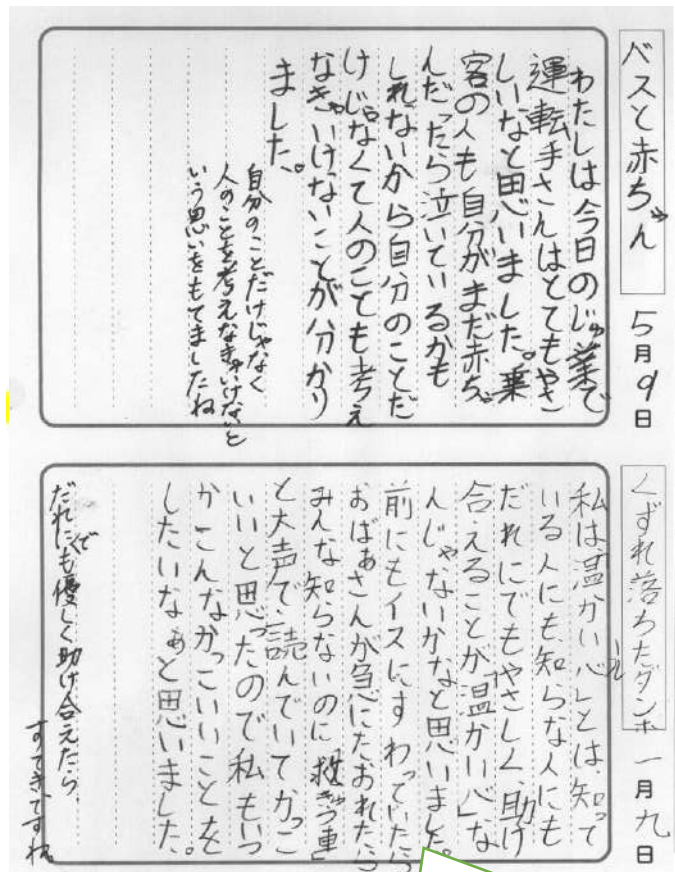 バスと赤ちゃん
5月9日
わたしは今日のじゅ業で
運転手さんはとてもやさ
しいなと思いました。乗
客の人も自分がまだ赤ち
んだったら泣いているかも
しれないから自分のことだ
けじゃなくて人のことも考え
なきゃいけないことが分かり
ました。
自分のことだけじゃなく
人のことを考えなきゃいけないと
いう思いをもてましたね
くずれ落ちたダンボール
一月九日
私は「温かい心」とは、知って
いる人にも知らな人にも
だれにでもやさしく、助け
合えることが「温かい心」な
んじゃないかなと思いました。
前にもイスにすわっていたら
おばあさんが急にたおれたら
みんな知らないのに「救きゅう車」
と大声で、読んでいてかっこ
いいと思ったので私もいつ
かこんなかっこいいことを
したいなぁと思いました。
だれにでも優しく助け合えたら、
すてきですね。